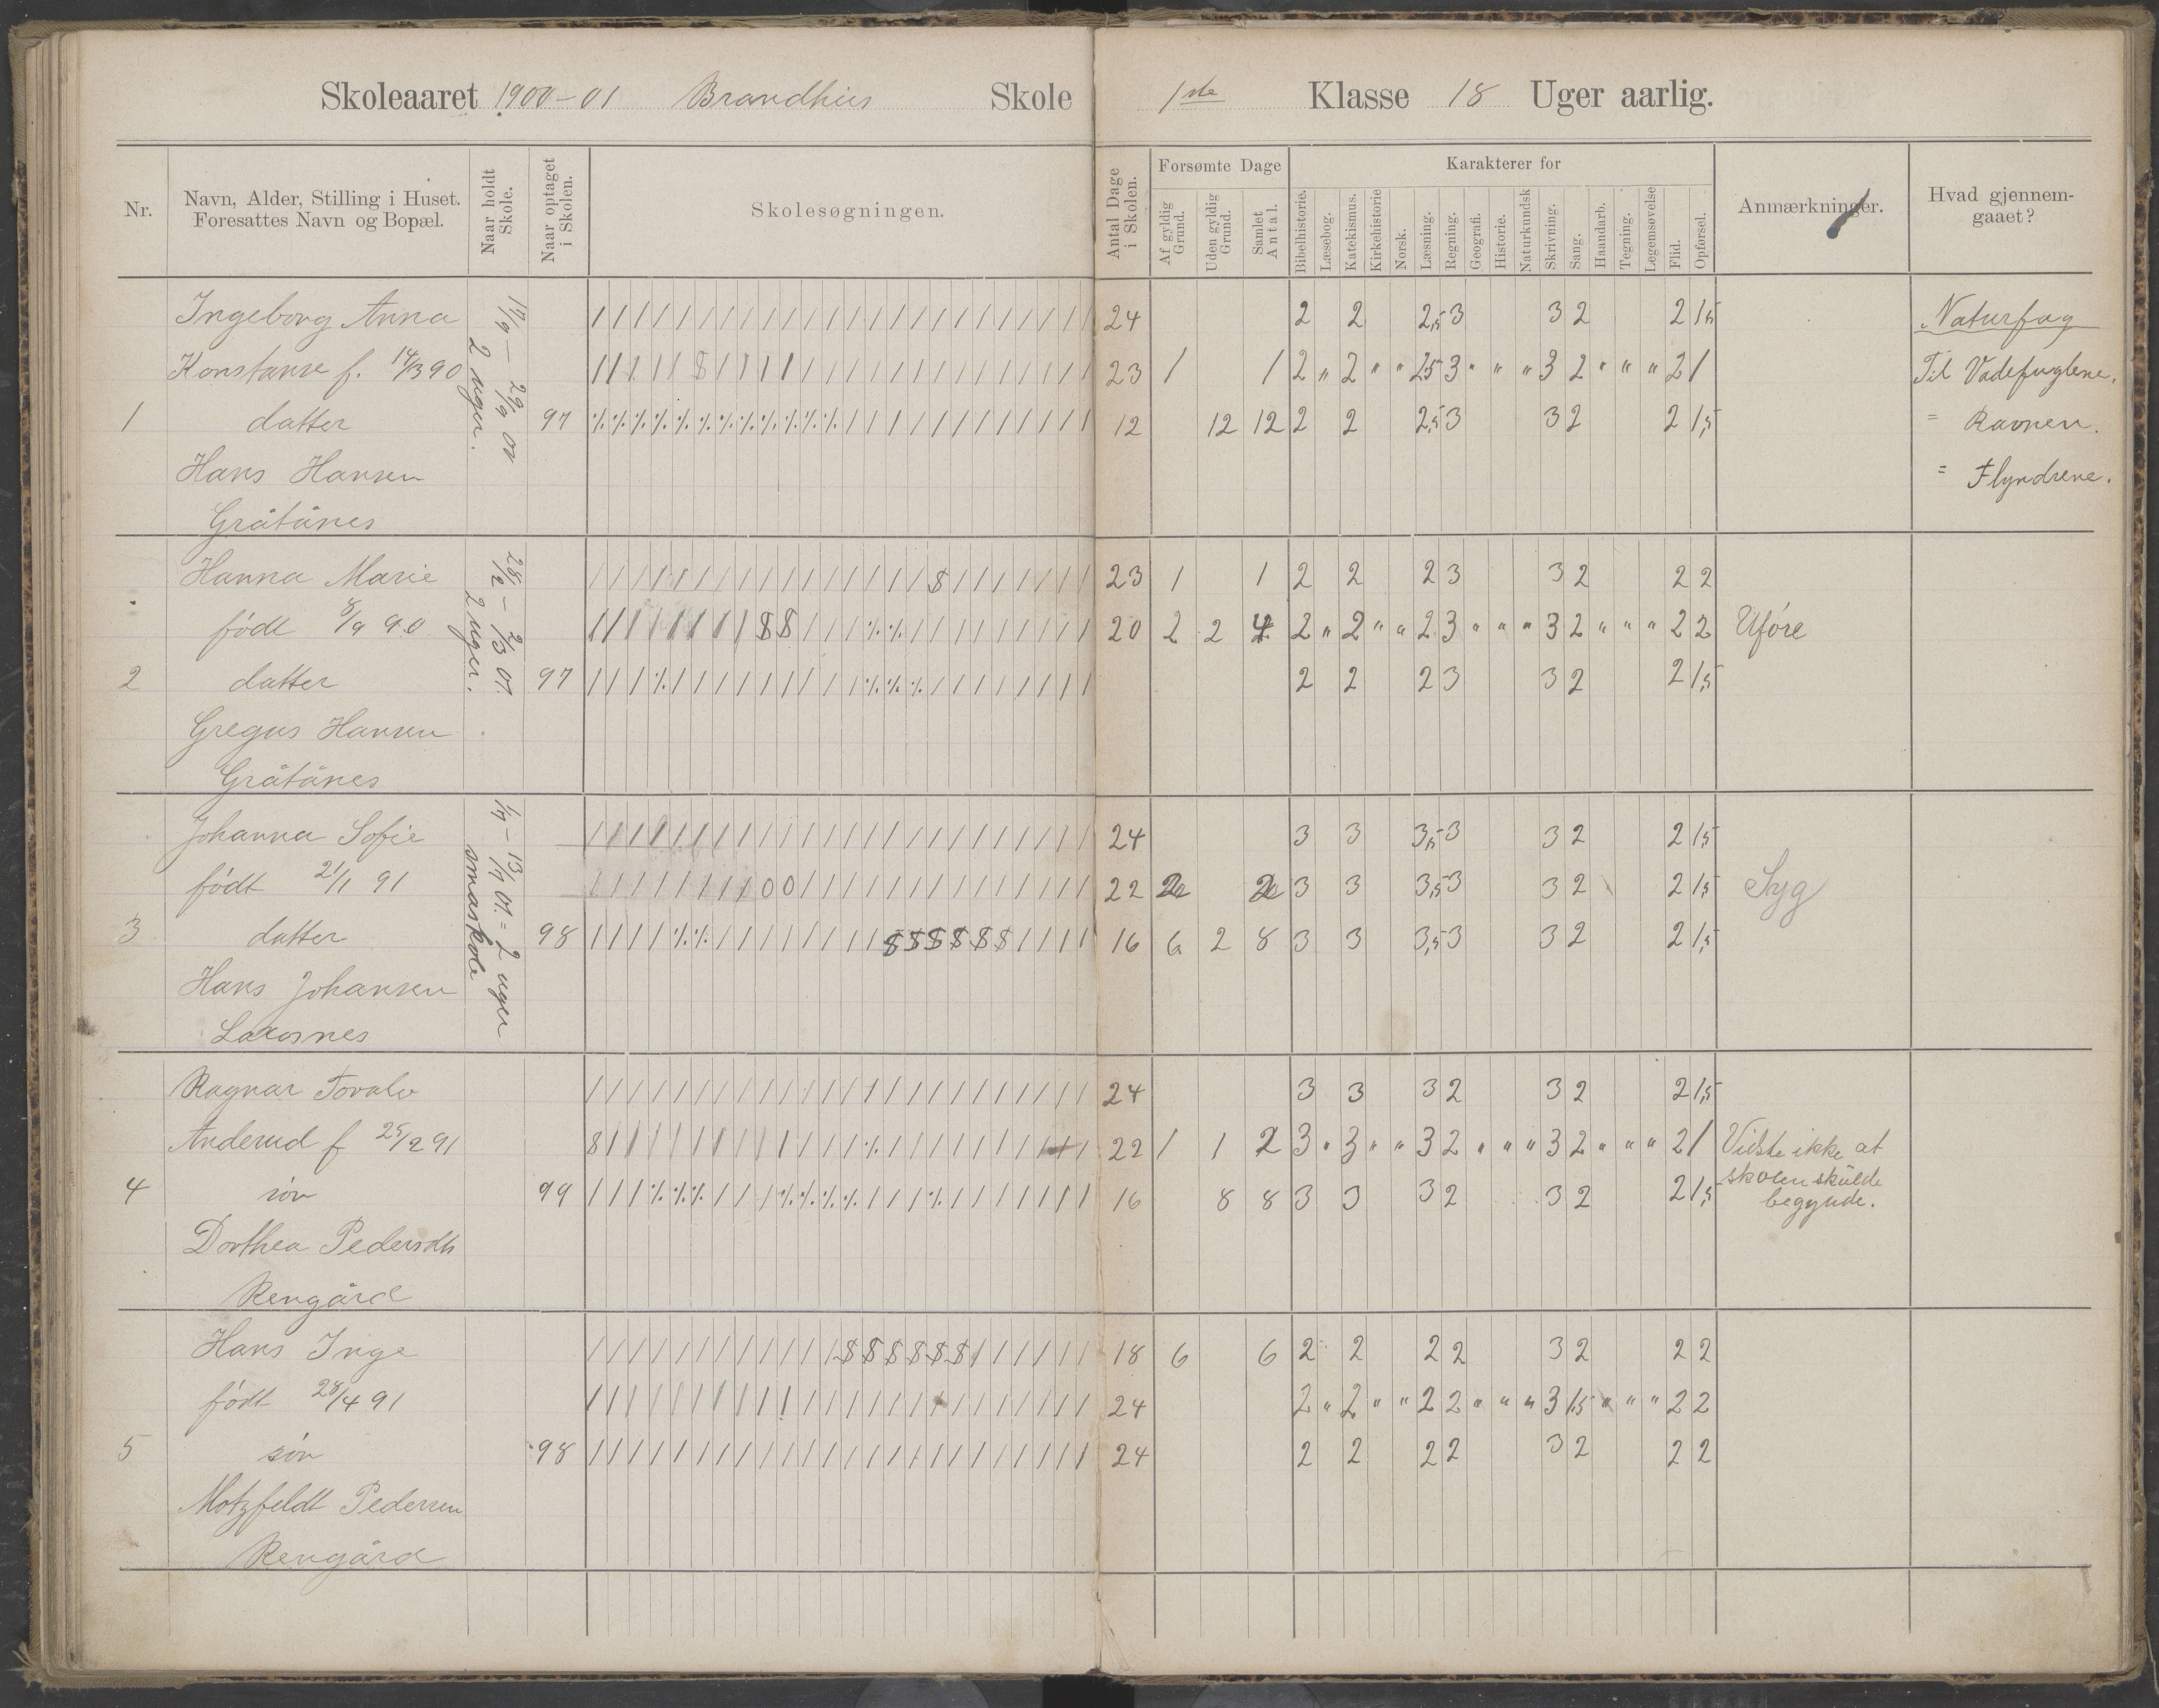 Skoleaaret 1900-01 Brandhus Skole 1ste Klasse 18 Uger aarlig.
Nr.
Navn, Alder, Stilling i Huset.
Foresattes Navn og Bopæl.
Naar holdt
Skole.
Naar optaget
i Skolen.
Skolesøgningen.
Antal Dage
i Skolen.
Forsømte Dage
Af gyldig
Grund.
Uden gyldig
Grund.
Samlet
Antal.
Karakterer for
Bibelhistorie.
Læsebog.
Katekismus.
Kirkehistorie
Norsk.
Læsning.
Regning.
Geografi.
Historie.
Naturkundsk
Skrivning.
Sang.
Haandarb.
Tegning.
Legemsøvelse
Flid.
Opførsel.
Anmærkninger.
Hvad gjennem-
gaaet?
17/9 – 29/9 00
2 uger.
Ingeborg Anna 24 2 2 2,5 3 3 2 2 1,5 Naturfag
Konstanse f. 14/3 90 23 1 1 2 " 2 " " 2,5 3 " " " 3 2 " " " 2 1 Til Vadefuglene.
1 datter 97 12 12 12 2 2 2,5 3 3 2 2 1,5 " Ravnen.
Hans Hansen " Flyndrene.
Gråtånes
28/2 – 2/3 01.
2 uger.
Hanna Marie 23 1 1 2 2 2 3 3 2 2 2
født 8/9 90 20 2 2 4 2 " 2 " " 2 3 " " " 3 2 " " " 2 2 Uføre
2 datter 97 2 2 2 3 3 2 2 1,5
Gregus Hansen
Gråtånes
1/7 – 13/7 01. = 2 uger
småskole
Johanna Sofie 24 3 3 3,5 3 3 2 2 1,5
født 21/1 91 22 2 2 3 3 3,5 3 3 2 2 1,5 Syg
3 datter 98 16 6 2 8 3 3 3,5 3 3 2 2 1,5
Hans Johansen
Laxosnes
Ragnar Torolv 24 3 3 3 2 3 2 2 1,5
Anderud f 25/2 91 22 1 1 2 3 " 3 " " 3 2 " " " 3 2 " " " 2 1 Vidste ikke at
skolen skulde
4 søn 99 16 8 8 3 3 3 2 3 2 2 1,5 begynde.
Dorthea Pedersdtr
Rengård
Hans Inge 18 6 6 2 2 2 2 3 2 2 2
født 28/4 91 24 2 " 2 " " 2 2 " " " 3 1,5 " " " 2 2
5 søn 98 24 2 2 2 2 3 2 2 2
Motzfeldt Pedersen
Rengård